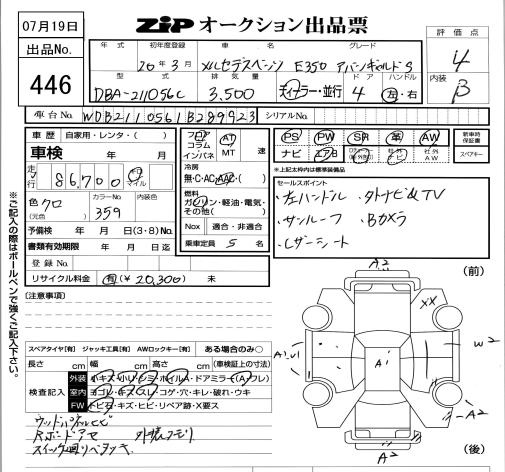 07月19日
出品No.
446
ZiP オークション出品票
評価点
4
内装
B
年式 初年度登録 車名 グレード
20年3月 メルセデスベンツ E350 アバンギャルドS
型式 排気量 ドア ハンドル
DBA-211056C 3,500 ディーラー・並行 4 左・右
車台No. WDB2110561B289923 シリアルNo.
車歴 自家用・レンタ( )
車検 年 月 日
走行 86,700 キロ マイル
色 クロ (元色) カラーNo. 359
予備検 年 月(3・8)No.
書類有効期限 年 月 日迄
登録No.
リサイクル料金 有(¥20,300) 未
フロア コラム インパネ AT MT 速
冷房 無・C・AC・AAC( )
燃料 ガソリン・軽油・電気・その他( )
Nox 適合・非適合
乗車定員 5 名
PS PW SR 革 AW
ナビ エアB 社外ナビ 社外AW
新車時保証書
スペアキー
*上記太枠内は標準装備品
セールスポイント
・左ハンドル ・タトナビ&TV
・サンルーフ ・Bカメラ
・レザーシート
※ご記入の際はボールペンで強くご記入下さい。
[注意事項]
スペアタイヤ[有] ジャッキ工具[有] AWロックキー[有] ある場合のみ○
長さ cm 幅 cm 高さ cm (車検証上の寸法)
検査記入
外装
室内 ヨゴレ・キズ・スレ・コゲ・穴・キレ・破れ・ウキ
FW トビ石・キズ・ヒビ・リペア跡・X要ス
ウッドパネルヒビ
(前)
A2
XX
W2
A1
A2
A2
(後)